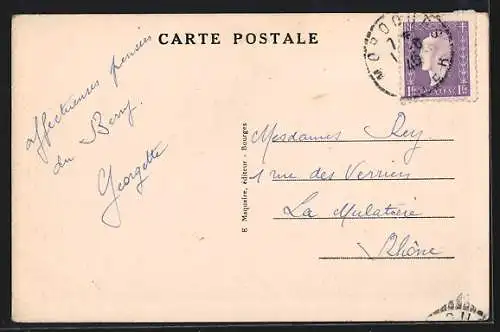 CARTE POSTALE
Affectueuses pensées
du Berry.
Georgette
E. Maquaire, éditeur - Bourges
Mesdames Rey
1 rue des Verriers
La Mulatière
Rhône
1F 1F